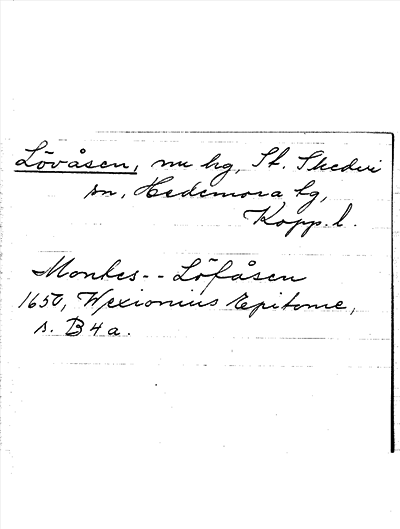 Lövåsen, nu hg, St. Skedvi
sn, Hedemora tg,
Kopp. l.
Montes -- Löfåsen
1650, Wexionius Epitome,
s. B4a.